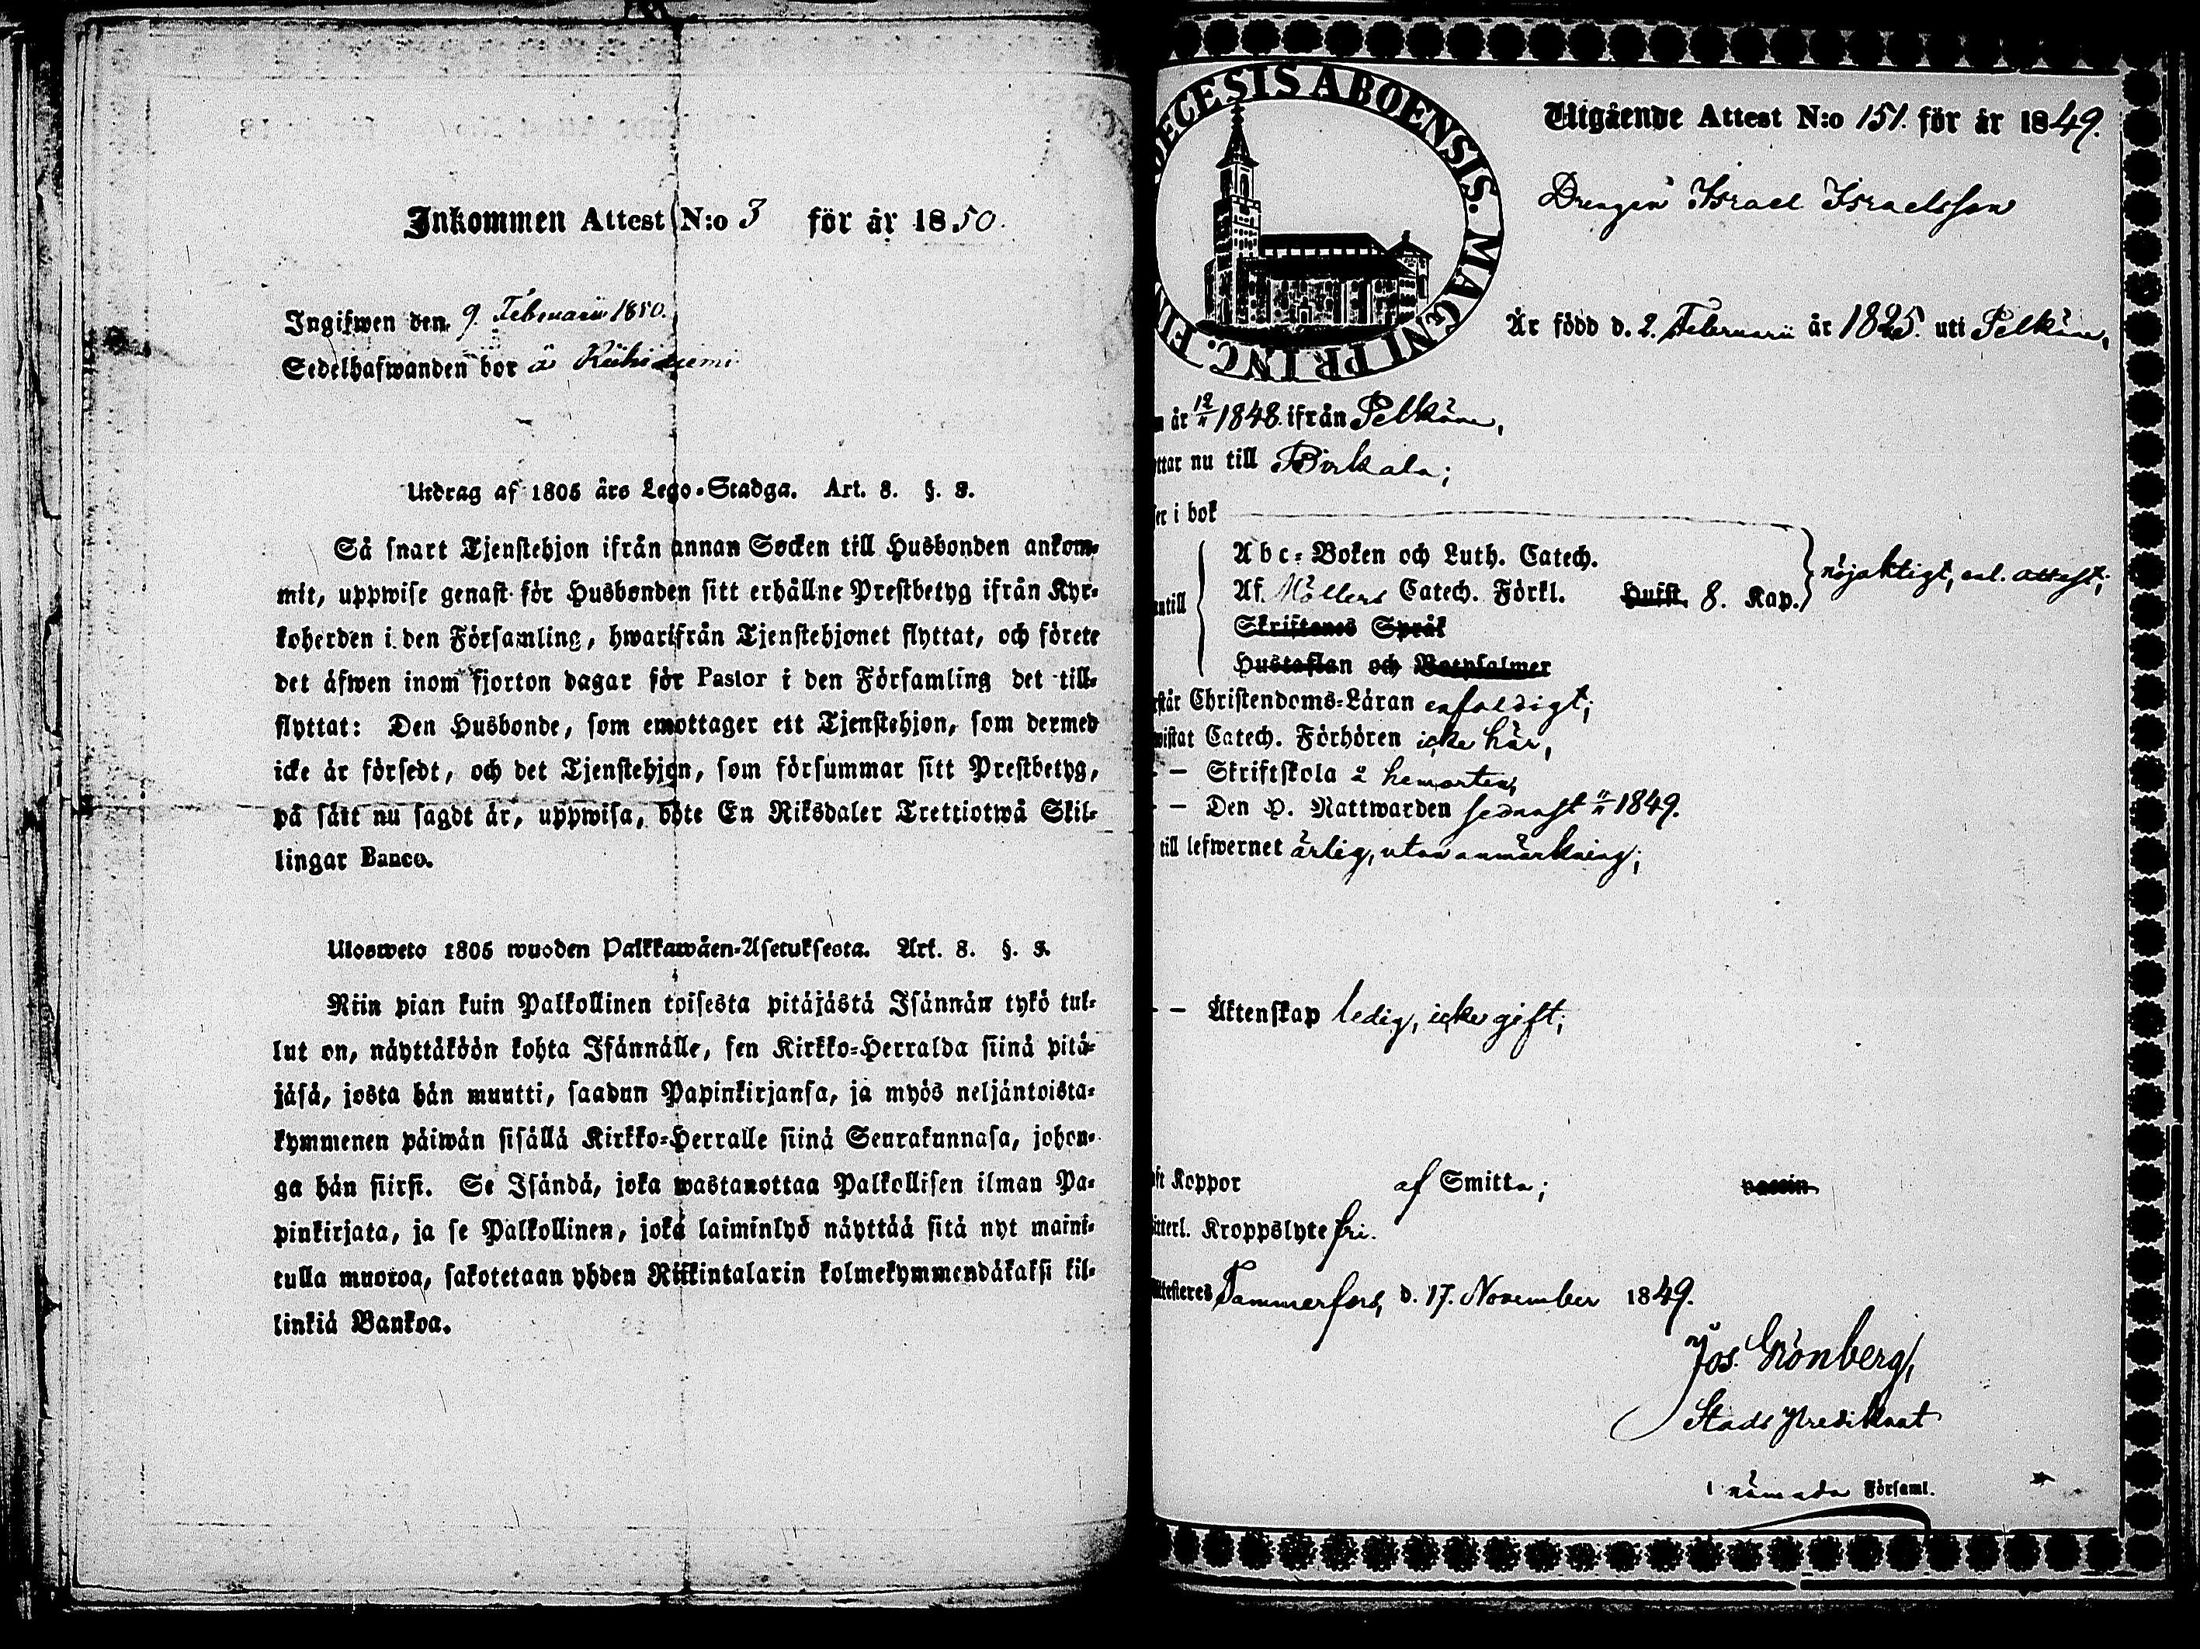 Inkommen Attest N:o 3 för år 1850.
Ingifwen den 9. Februarii 1850.
Sedelhafwanden bor å Riihiniemi
Utdrag af 1805 års Lego-Stadga. Art. 8. §. 3.
Så snart Tjenstehjon ifrån annan Socken till Husbonden ankom-
mit, uppwise genast för Husbonden sitt erhållne Prestbetyg ifrån Kyr-
koherden i den Församling, hwarifrån Tjenstehjonet flyttat, och förete
det äfwen inom fjorton dagar för Pastor i den Församling det till-
flyttat: Den Husbonde, som emottager ett Tjenstehjon, som dermed
icke är försedt, och det Tjenstehjon, som försummar sitt Prestbetyg,
på sätt nu sagdt är, uppwisa, böte En Riksdaler Trettiotwå Skil-
lingar Banco.
Ulosweto 1805 wuoden Palkkawäen-Asetuksesta. Art. 8. §. 3.
Niin pian kuin Palkollinen toisesta pitäjästä Isännän tykö tul-
lut on, näyttäköön kohta Isännälle, sen Kirkko-Herralda siinä pitä-
jäsä, josta hän muutti, saadun Papinkirjansa, ja myös neljäntoista-
kymmenen päiwän sisällä Kirkko-Herralle siinä Seurakunnasa, johon-
ga hän siirsi. Se Isändä, joka wastanottaa Palkollisen ilman Pa-
pinkirjata, ja se Palkollinen, joka laiminlyö näyttää sitä nyt maini-
tulla muotoa, sakotetaan yhden Riikintalarin kolmekymmendäkaksi kil-
linkiä Bankoa.
DECESIS ABOENSIS. MAGNI PRINC. FIN
Utgående Attest N:o 151. för år 1849.
Drengen Israel Israelsson
Är född d. 2. Februarii år 1825. uti Pelkäne,
år 12/11 1848. ifrån Pelkäne,
ttar nu till Birkala;
er i bok
Abc-Boken och Luth. Catech.
utill Af Möllers Catech. Förkl. Hufst. 8. Kap. nöjaktigt, enl. attest;
Skriftenes Språk
Hustaflan och Botpsalmer
står Christendoms-Läran enfaldigt;
wistat Catech. Förhören icke här,
– – Skriftskola å hemorten,
– – Den H. Nattwarden sednast 11/11 1849.
till lefwernet ärlig, utan anmärkning;
– – Äktenskap ledig, icke gift;
ft Koppor af Smitta; vaccin
itterl. Kroppslyte fri.
Attesteres Tammerfors, d. 17. November 1849.
Jos. Grönberg,
Stads Predikant
i nämnda Församl.